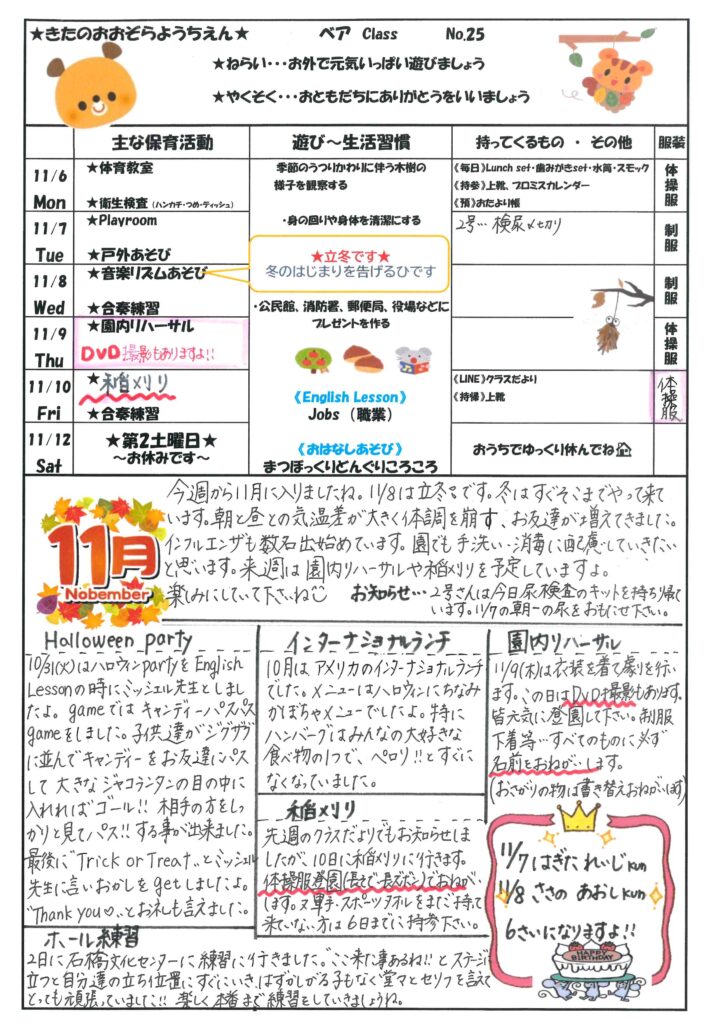 ★きたのおおぞらようちえん★ ベア Class No.25
★ねらい・・・お外で元気いっぱい遊びましょう
★やくそく・・・おともだちにありがとうをいいましょう
主な保育活動 遊び～生活習慣 持ってくるもの ・ その他 服装
11/6
Mon
★体育教室
★衛生検査（ハンカチ・つめ・ティッシュ）
季節のうつりかわりに伴う木樹の
様子を観察する
《毎日》Lunch set・歯みがきset・水筒・スモック
《持参》上靴、プロミスカレンダー
《預》おたより帳
体操服
11/7
Tue
★Playroom
★戸外あそび
・身の回りや身体を清潔にする
2号… 検尿〆切り
制服
11/8
Wed
★音楽リズムあそび
★合奏練習
★立冬です★
冬のはじまりを告げるひです
・公民館、消防署、郵便局、役場などに
プレゼントを作る
制服
11/9
Thu
★園内リハーサル
DVD撮影もありますよ!!
体操服
11/10
Fri
★稲メリリ
★合奏練習
《English Lesson》
Jobs （職業）
《LINE》クラスだより
《持帰》上靴
体操服
11/12
Sat
★第2土曜日★
～お休みです～
《おはなしあそび》
まつぼっくりどんぐりころころ
おうちでゆっくり休んでね
11月
Nobember
今週から11月に入りましたね。11/8は立冬です。冬はすぐそこまでやって来て
います。朝と昼との気温差が大きく体調を崩す、お友達が増えてきました。
インフルエンザも数名出始めています。園でも手洗い・消毒に配慮していきたい
と思います。来週は園内リハーサルや稲メリリを予定していますよ。
楽しみにしていて下さいね
お知らせ… 2号さんは今日尿検査のキットを持ち帰って
います。11/7の朝一の尿をおもたせ下さい。
Halloween party
10/31(火)はハロウィンpartyをEnglish
Lessonの時にミッシェル先生としまし
たよ。gameではキャンディーパスパス
gameをしました。子供達がジグザグ
に並んでキャンディーをお友達にパス
して大きなジャコランタンの目の中に
入れればゴール!! 相手の方をしっ
かりと見てパス!!する事が出来ました。
最後に"Trick or Treat"とミッシェル
先生に言いおかしをgetしましたよ。
"Thank you♡"とお礼も言えました。
インターナショナルランチ
10月はアメリカのインターナショナルランチ
でした。メニューはハロウィンにちなみ
かぼちゃメニューでしたよ。特に
ハンバーグはみんなの大好きな
食べ物の1つで、ペロリ!!とすぐに
なくなっていました。
稲メリリ
先週のクラスだよりでもお知らせしま
したが、10日に稲メリリに行きます。
体操服登園(長そで・長ズボン)でおねがい
します。又軍手・スポーツタオルをまだ持って
来ていない方は6日までに持参下さい。
園内リハーサル
11/9(木)は衣装を着て劇を行い
ます。この日はDVD撮影もあります。
皆元気に登園して下さい。制服
下着等…すべてのものに必ず
名前をおねがいします。
(おさがりの物は書き替えおねがいします)
11/7 はぎた れいじkun
11/8 ささの あおしkun
6さいになりますよ!!
HAPPY BIRTHDAY
ホール練習
2日に石橋文化センターに練習に行きました。"ここ来た事あるね!!"とステージに
立つと自分達の立ち位置にすぐにいき、はずかしがる子もなく堂々とセリフを言えて
とっても頑張っていました!! 楽しく本番まで練習をしていきましょうね。